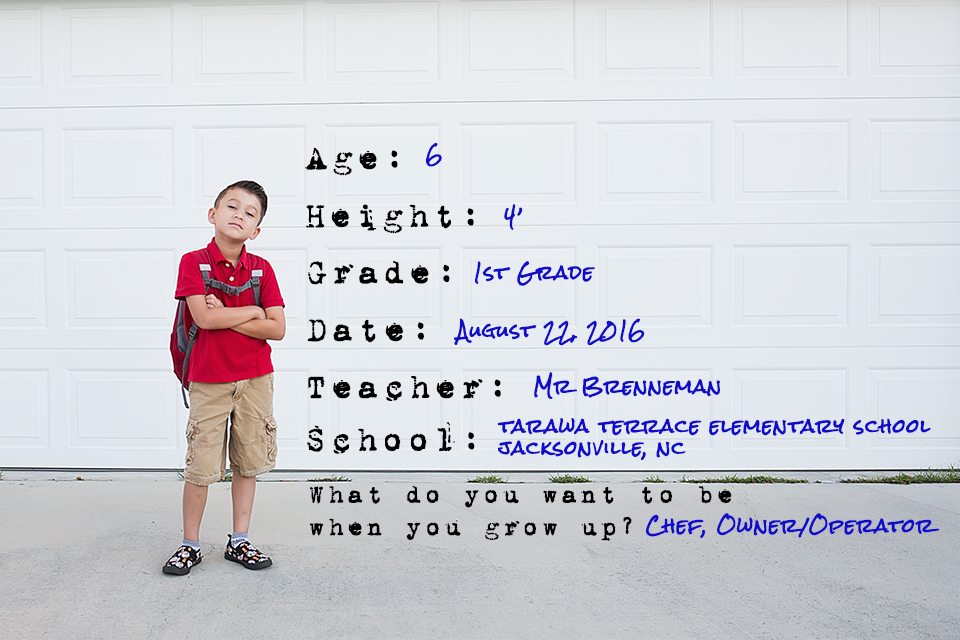 Age: 6
Height: 4'
Grade: 1st Grade
Date: August 22, 2016
Teacher: Mr Brenneman
School: Tarawa Terrace Elementary School
Jacksonville, NC
What do you want to be
when you grow up? Chef, Owner/Operator